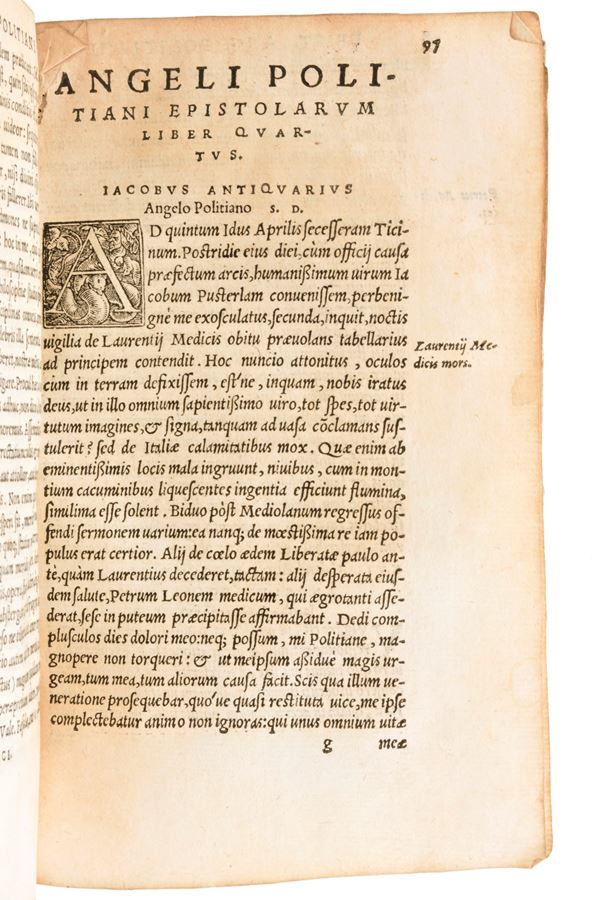 97
ANGELI POLI-
TIANI EPISTOLARVM
LIBER QVAR-
TVS.
IACOBVS ANTIQVARIVS
Angelo Politiano S. D.
AD quintum Idus Aprilis secesseram Tici-
num. Postridie eius diei, cùm officij causa
præfectum arcis, humanißimum uirum Ia
cobum Pusterlam conuenissem, perbeni-
gnè me exosculatus, secunda, inquit, noctis
uigilia de Laurentij Medicis obitu præuolans tabellarius
ad principem contendit. Hoc nuncio attonitus, oculos
cùm in terram defixissem, est'ne, inquam, nobis iratus
deus, ut in illo omnium sapientißimo uiro, tot spes, tot uir-
tutum imagines, & signa, tanquam ad uasa cōclamans su-
stulerit? sed de Italiæ calamitatibus mox. Quæ enim ab
eminentißimis locis mala ingruunt, niuibus, cum in mon-
tium cacuminibus liquescentes ingentia efficiunt flumina,
simillima esse solent. Biduo pòst Mediolanum regressus of-
fendi sermonem uarium: ea nanq; de mœstißima re iam po-
pulus erat certior. Alij de cœlo ædem Liberatæ paulo an-
tè, quàm Laurentius decederet, tactam: alij desperata eius-
dem salute, Petrum Leonem medicum, qui ægrotanti asse-
derat, sese in puteum præcipitasse affirmabant. Dedi com-
plusculos dies dolori meo: neq; possum, mi Politiane, ma-
gnopere non torqueri: & ut meipsum aßiduè magis ur-
geam, tum mea, tum aliorum causa facit. Scis qua illum ue-
neratione prosequebar, quo'ue quasi restituta uice, me ipse
complectebatur animo non ignoras: qui unus omnium uitæ
g meæ
Laurentij Me-
dicis mors.